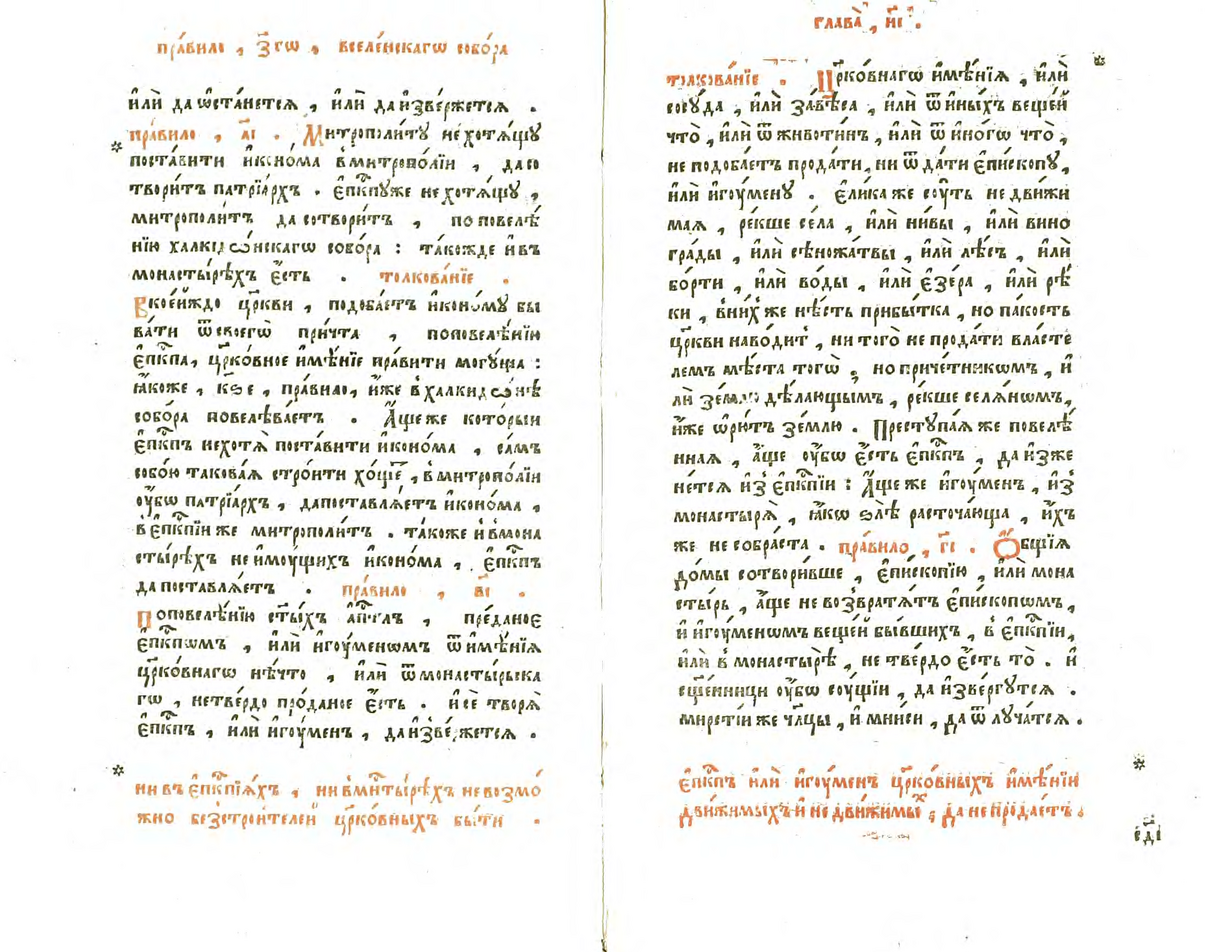 пра́вило , з҃гѡ , вселе́нскагѡ собо́ра
и҆лѝ да ѡ҆ста́нетсѧ , и҆лѝ да и҆зве́ржетсѧ .
пра́вило , а҃і . Митрополи́ту не хотѧ́щꙋ
поста́вити и҆коно́ма вмитропо́лїи , да со
твори́тъ патрїа́рхъ . є҆пⷭ҇кпꙋже не хотѧ́щꙋ ,
митрополи́тъ да сотвори́тъ , по повелѣ́
нїю халкидѡ́нскагѡ собо́ра : та́кожде и҆ въ
монастырѣ́хъ є҆́сть . толкова́нїе .
Вкое́йждо цр҃кви , подоба́етъ и҆коно́мꙋ бы
ва́ти ѿ своегѡ̀ при́чта , поповелѣ́нїю
є҆пⷭ҇кпа, цр҃ко́вное и҆мѣ́нїе пра́вити могꙋ́ща :
ꙗ҆́коже , к҃ѕ е , пра́вило, и҆́же в халкидѡ́нѣ
собо́ра повелѣва́етъ . А҆́ще же кото́рыи
є҆пⷭ҇кпъ не хотѧ̀ поста́вити и҆коно́ма , са́мъ
собо́ю такова́ѧ стро́ити хо́щеⷮ , в митропо́лїи
ѹ҆́бѡ патрїа́рхъ , да поставлѧ́етъ и҆коно́ма ,
в є҆пⷭ҇кпїи же митрополи́тъ . та́коже и҆ в мона
стырѣ́хъ не и҆мѹ́щихъ и҆коно́ма , є҆пⷭ҇кпъ
да поставлѧ́етъ . пра́вило , в҃і .
По повелѣ́нїю ст҃ы́хъ а҆пⷭ҇тлъ , пре́даное
є҆пⷭ҇кпѡмъ , и҆лѝ и҆гѹ́менѡмъ ѿ и҆мѣ́нїѧ
цр҃ко́внагѡ нѣ́что , и҆лѝ ѿ монасты́рьска
гѡ , не тве́рдо про́даное є҆́сть . и҆ сѐ творѧ̀
є҆пⷭ҇кпъ , и҆лѝ и҆гѹ́менъ , да и҆зве́ржетсѧ .
* ни въ є҆пⷭ҇кпїѧхъ , ни в мнⷭ҇тырѣ́хъ не возмо́
жно без̾ строи́телей цр҃ко́вныхъ бы́ти .
глава̀ , н҃і .
толкова́нїе . Цр҃ко́внагѡ и҆мѣ́нїѧ , и҆лѝ *
сосꙋ́да , и҆лѝ завѣ́са , и҆лѝ ѿ и҆ны́хъ веще́й
что̀ , и҆лѝ ѿ живо́тинъ , и҆лѝ ѿ и҆но́гѡ что̀ ,
не подоба́етъ прода́ти, ни ѿда́ти є҆пи́скопꙋ,
и҆лѝ и҆гѹ́менꙋ . є҆ли́ка же сѹ́ть не движи
маѧ , ре́кше се́ла , и҆лѝ ни́вы , и҆лѝ вино
гра́ды , и҆лѝ сѣножа́твы , и҆лѝ лѣ́съ , и҆лѝ
бо́рти , и҆лѝ во́ды , и҆лѝ є҆зе́ра , и҆лѝ рѣ́
ки , в ни́хже нѣ́сть прибы́тка , но па́кость
цр҃кви наво́дитъ , ни того̀ не прода́ти власте́
лемъ мѣ́ста тогѡ̀ ; но приче́тникѡмъ , и҆
лѝ зе́млю дѣ́лающымъ , ре́кше селѧ́нѡмъ ,
и҆́же ѡ҆рю́тъ зе́млю . Преступа́ѧ же повелѣ́
ннаѧ , а҆́ще ѹ҆́бѡ є҆́сть є҆пⷭ҇кпъ , да и҆зже
не́тсѧ и҆з̾ є҆пⷭ҇кпїи : А҆́ще же и҆гѹ́менъ , и҆з̾
монастырѧ̀ , ꙗ҆́кѡ ѕлѣ̀ расточа́юща , и҆́хъ
же не собра́ста . пра́вило , г҃і . Ѻ҆́бщїѧ
до́мы сотвори́вше , є҆писко́пїю , и҆лѝ мона
сты́рь , а҆́ще не возвратѧ́тъ є҆пи́скопѡмъ ,
и҆ и҆гѹ́менѡмъ веще́й бы́вшихъ , в є҆пⷭ҇кпїи ,
и҆лѝ в монастырѣ̀ , не тве́рдо є҆́сть то̀ . и҆
сщ҃е́нницы ѹ҆́бѡ сѹ́щїи , да и҆зве́ргꙋтсѧ .
мирстїи же чл҃цы , и҆ мни́си , да ѿлꙋча́тсѧ .
є҆пⷭ҇кпъ и҆лѝ и҆гѹ́менъ цр҃ко́вныхъ и҆мѣ́нїи *
дви́жимыхъ и҆ не дви́жимыⷯ , да не прода́етъ .
є҆дⷪ҇і